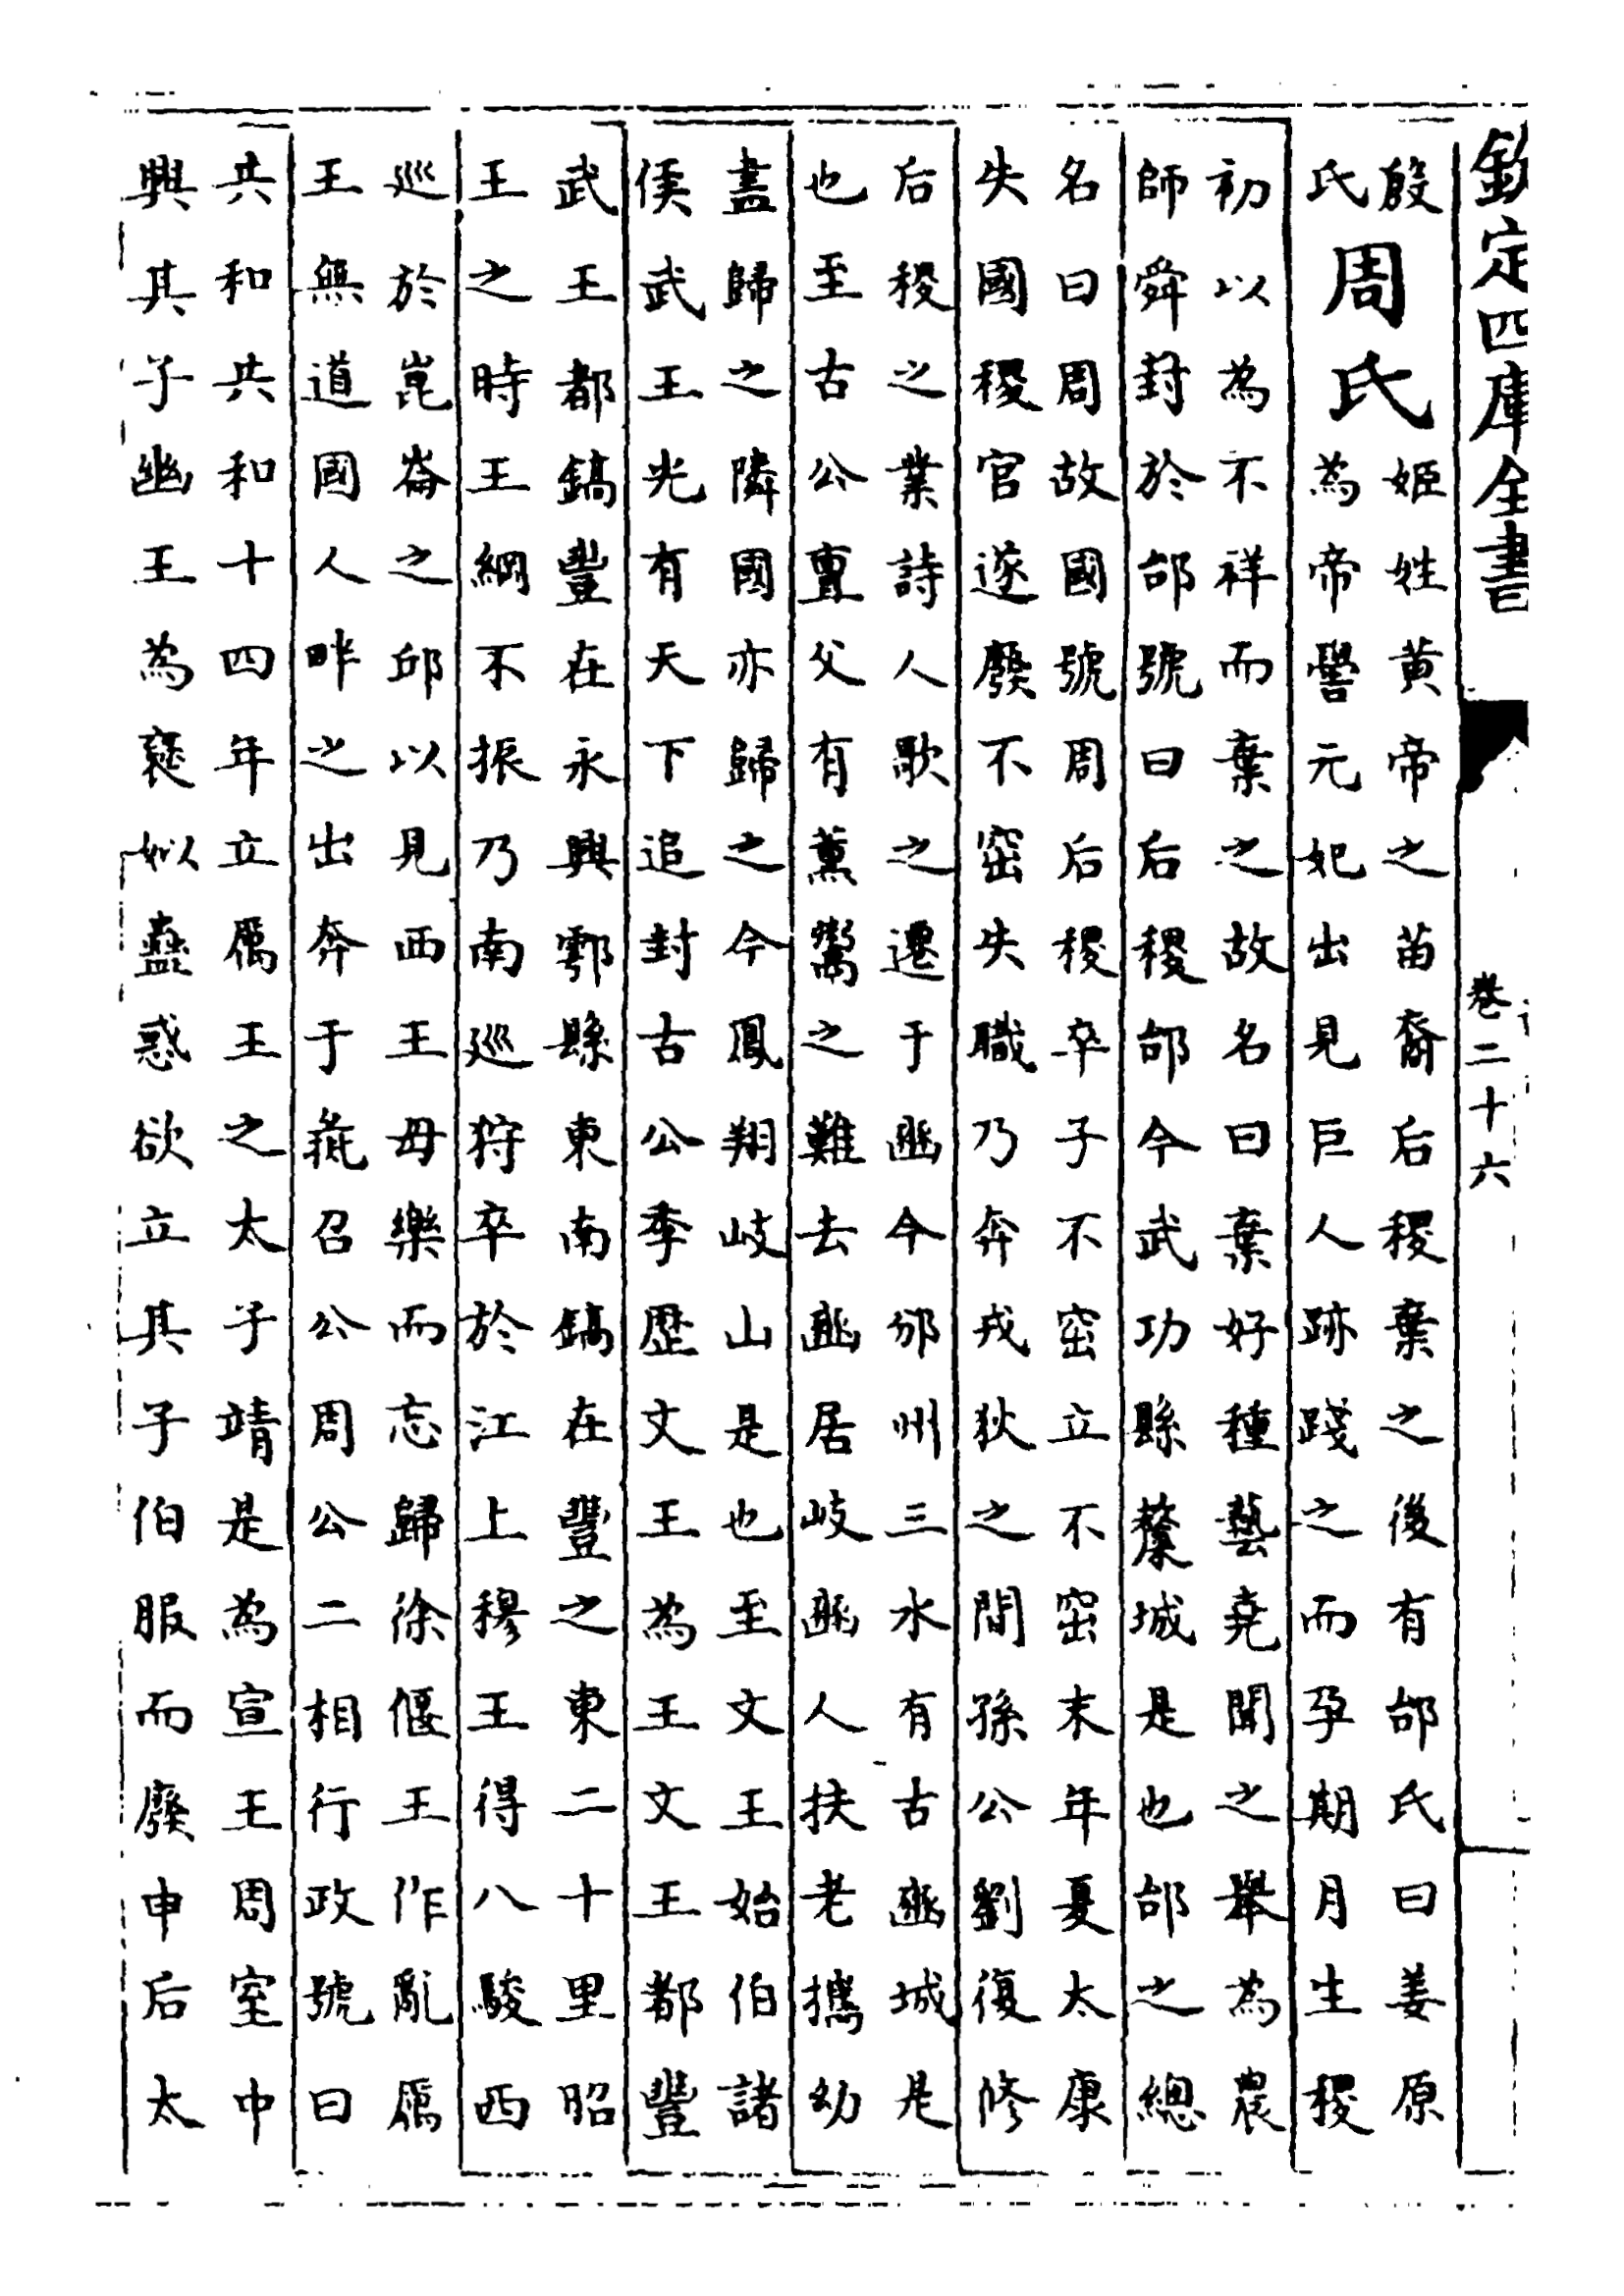 欽定四庫全書
卷二十六
殷
氏
周氏
姬姓黄帝之苗裔后稷棄之後有邰氏曰姜原
為帝嚳元妃出見巨人跡踐之而孕期月生稷
初以為不祥而棄之故名曰棄好種藝堯聞之舉為農
師舜封於邰號曰后稷邰今武功縣斄城是也邰之總
名曰周故國號周后稷卒子不窋立不窋末年夏太康
失國稷官遂廢不窋失職乃奔戎狄之間孫公劉復修
后稷之業詩人歌之遷于豳今邠州三水有古豳城是
也至古公亶父有薰鬻之難去豳居岐豳人扶老攜幼
盡歸之隣國亦歸之今鳳翔岐山是也至文王始伯諸
侯武王光有天下追封古公季歴文王為王文王都豐
武王都鎬豐在永興鄠縣東南鎬在豐之東二十里昭
王之時王綱不振乃南廵狩卒於江上穆王得八駿西
巡於崑崙之邱以見西王母樂而忘歸徐偃王作亂厲
王無道國人畔之出奔于彘召公周公二相行政號曰
共和共和十四年立厲王之太子靖是為宣王周室中
興其子幽王為褒姒蠱惑欲立其子伯服而廢申后太